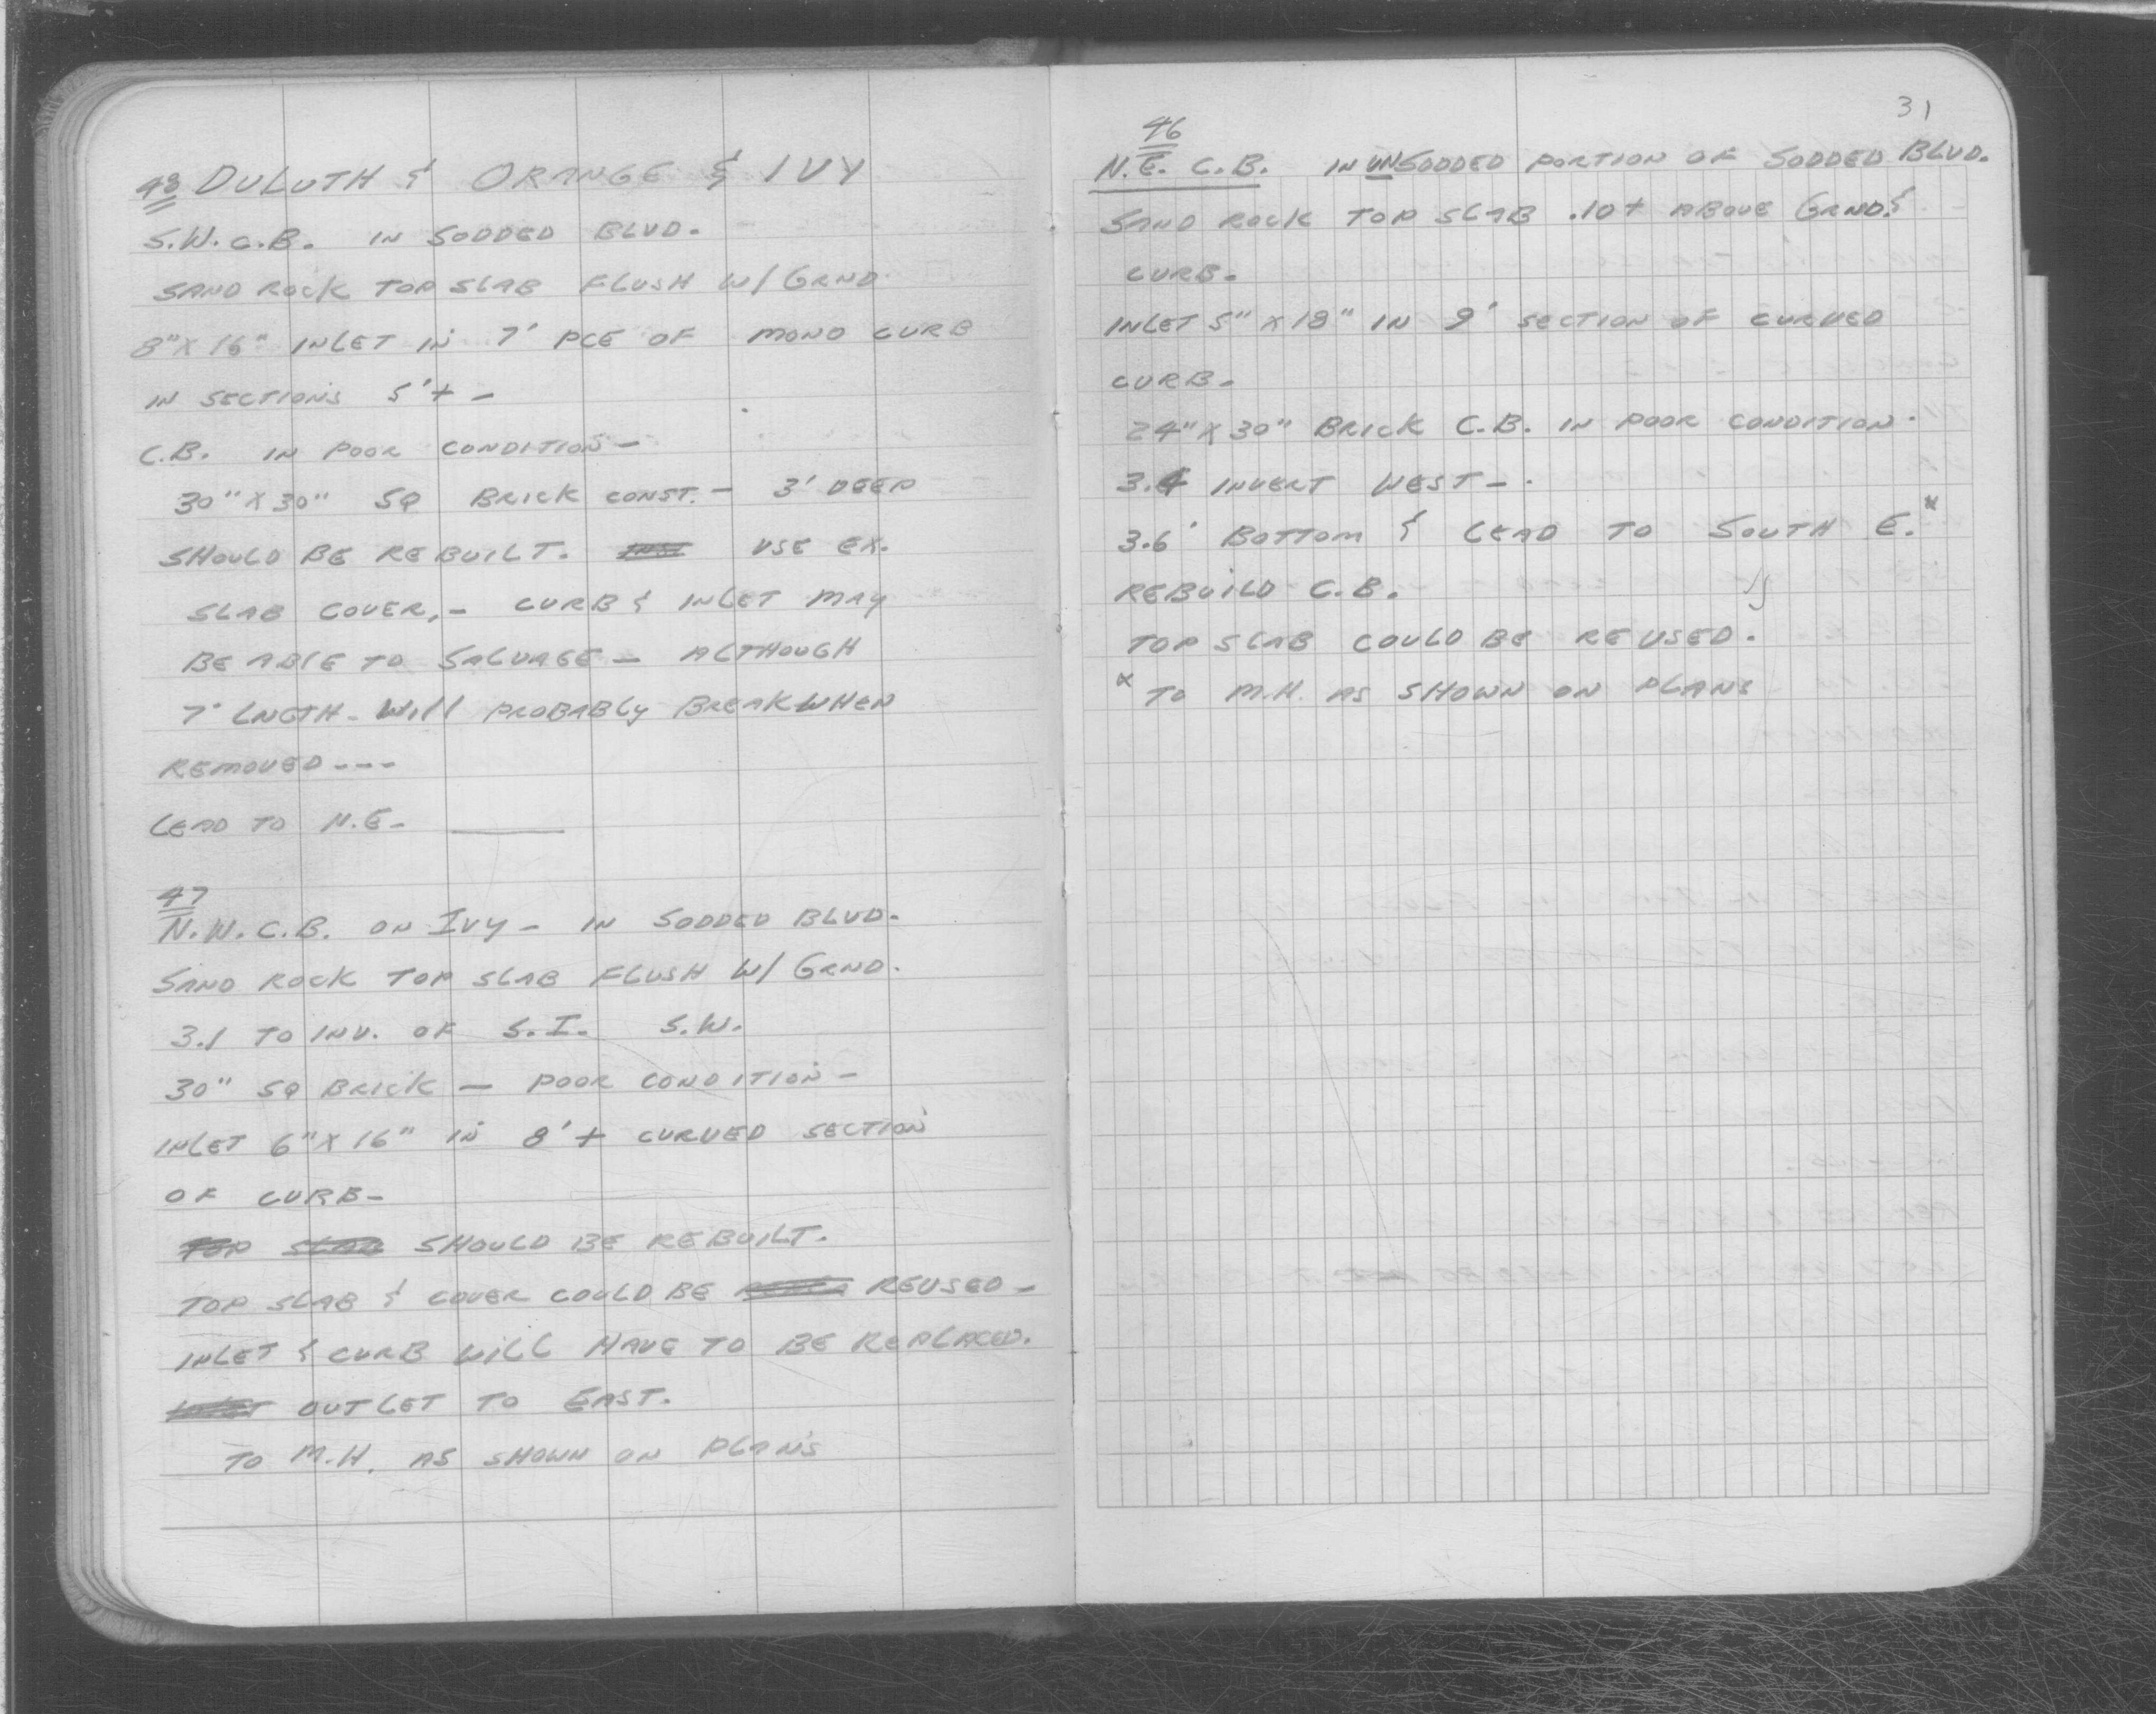 48 DULUTH & ORANGE & IVY
S.W. C.B. IN SODDED BLVD.
SAND ROCK TOP SLAB FLUSH W/ GRND.
8" X 16" INLET IN 7' PCE OF MONO CURB
IN SECTIONS 5'+ -
C.B. IN POOR CONDITION -
30" X 30" SQ BRICK CONST. - 3' DEEP
SHOULD BE REBUILT. USE EX.
SLAB COVER, - CURB & INLET MAY
BE ABLE TO SALVAGE - ALTHOUGH
7' LNGTH - WILL PROBABLY BREAK WHEN
REMOVED ---
LEAD TO N.E. -
47
N.W. C.B. ON IVY - IN SODDED BLVD.
SAND ROCK TOP SLAB FLUSH W/ GRND.
3.1 TO INV. OF S.I. S.W.
30" SQ BRICK - POOR CONDITION -
INLET 6" X 16" IN 8'+ CURVED SECTION
OF CURB -
TOP SLAB SHOULD BE REBUILT.
TOP SLAB & COVER COULD BE REUSED -
INLET & CURB WILL HAVE TO BE REPLACED.
INLET OUTLET TO EAST.
TO M.H. AS SHOWN ON PLANS
31
46
N.E. C.B. IN UNSODDED PORTION OF SODDED BLVD.
SAND ROCK TOP SLAB .10+ ABOVE GRND. &
CURB -
INLET 5" X 18" IN 9' SECTION OF CURVED
CURB -
24" X 30" BRICK C.B. IN POOR CONDITION.
3.4 INVERT WEST -
3.6' BOTTOM & LEAD TO SOUTH E. *
REBUILD C.B.
TOP SLAB COULD BE REUSED.
* TO M.H. AS SHOWN ON PLANS